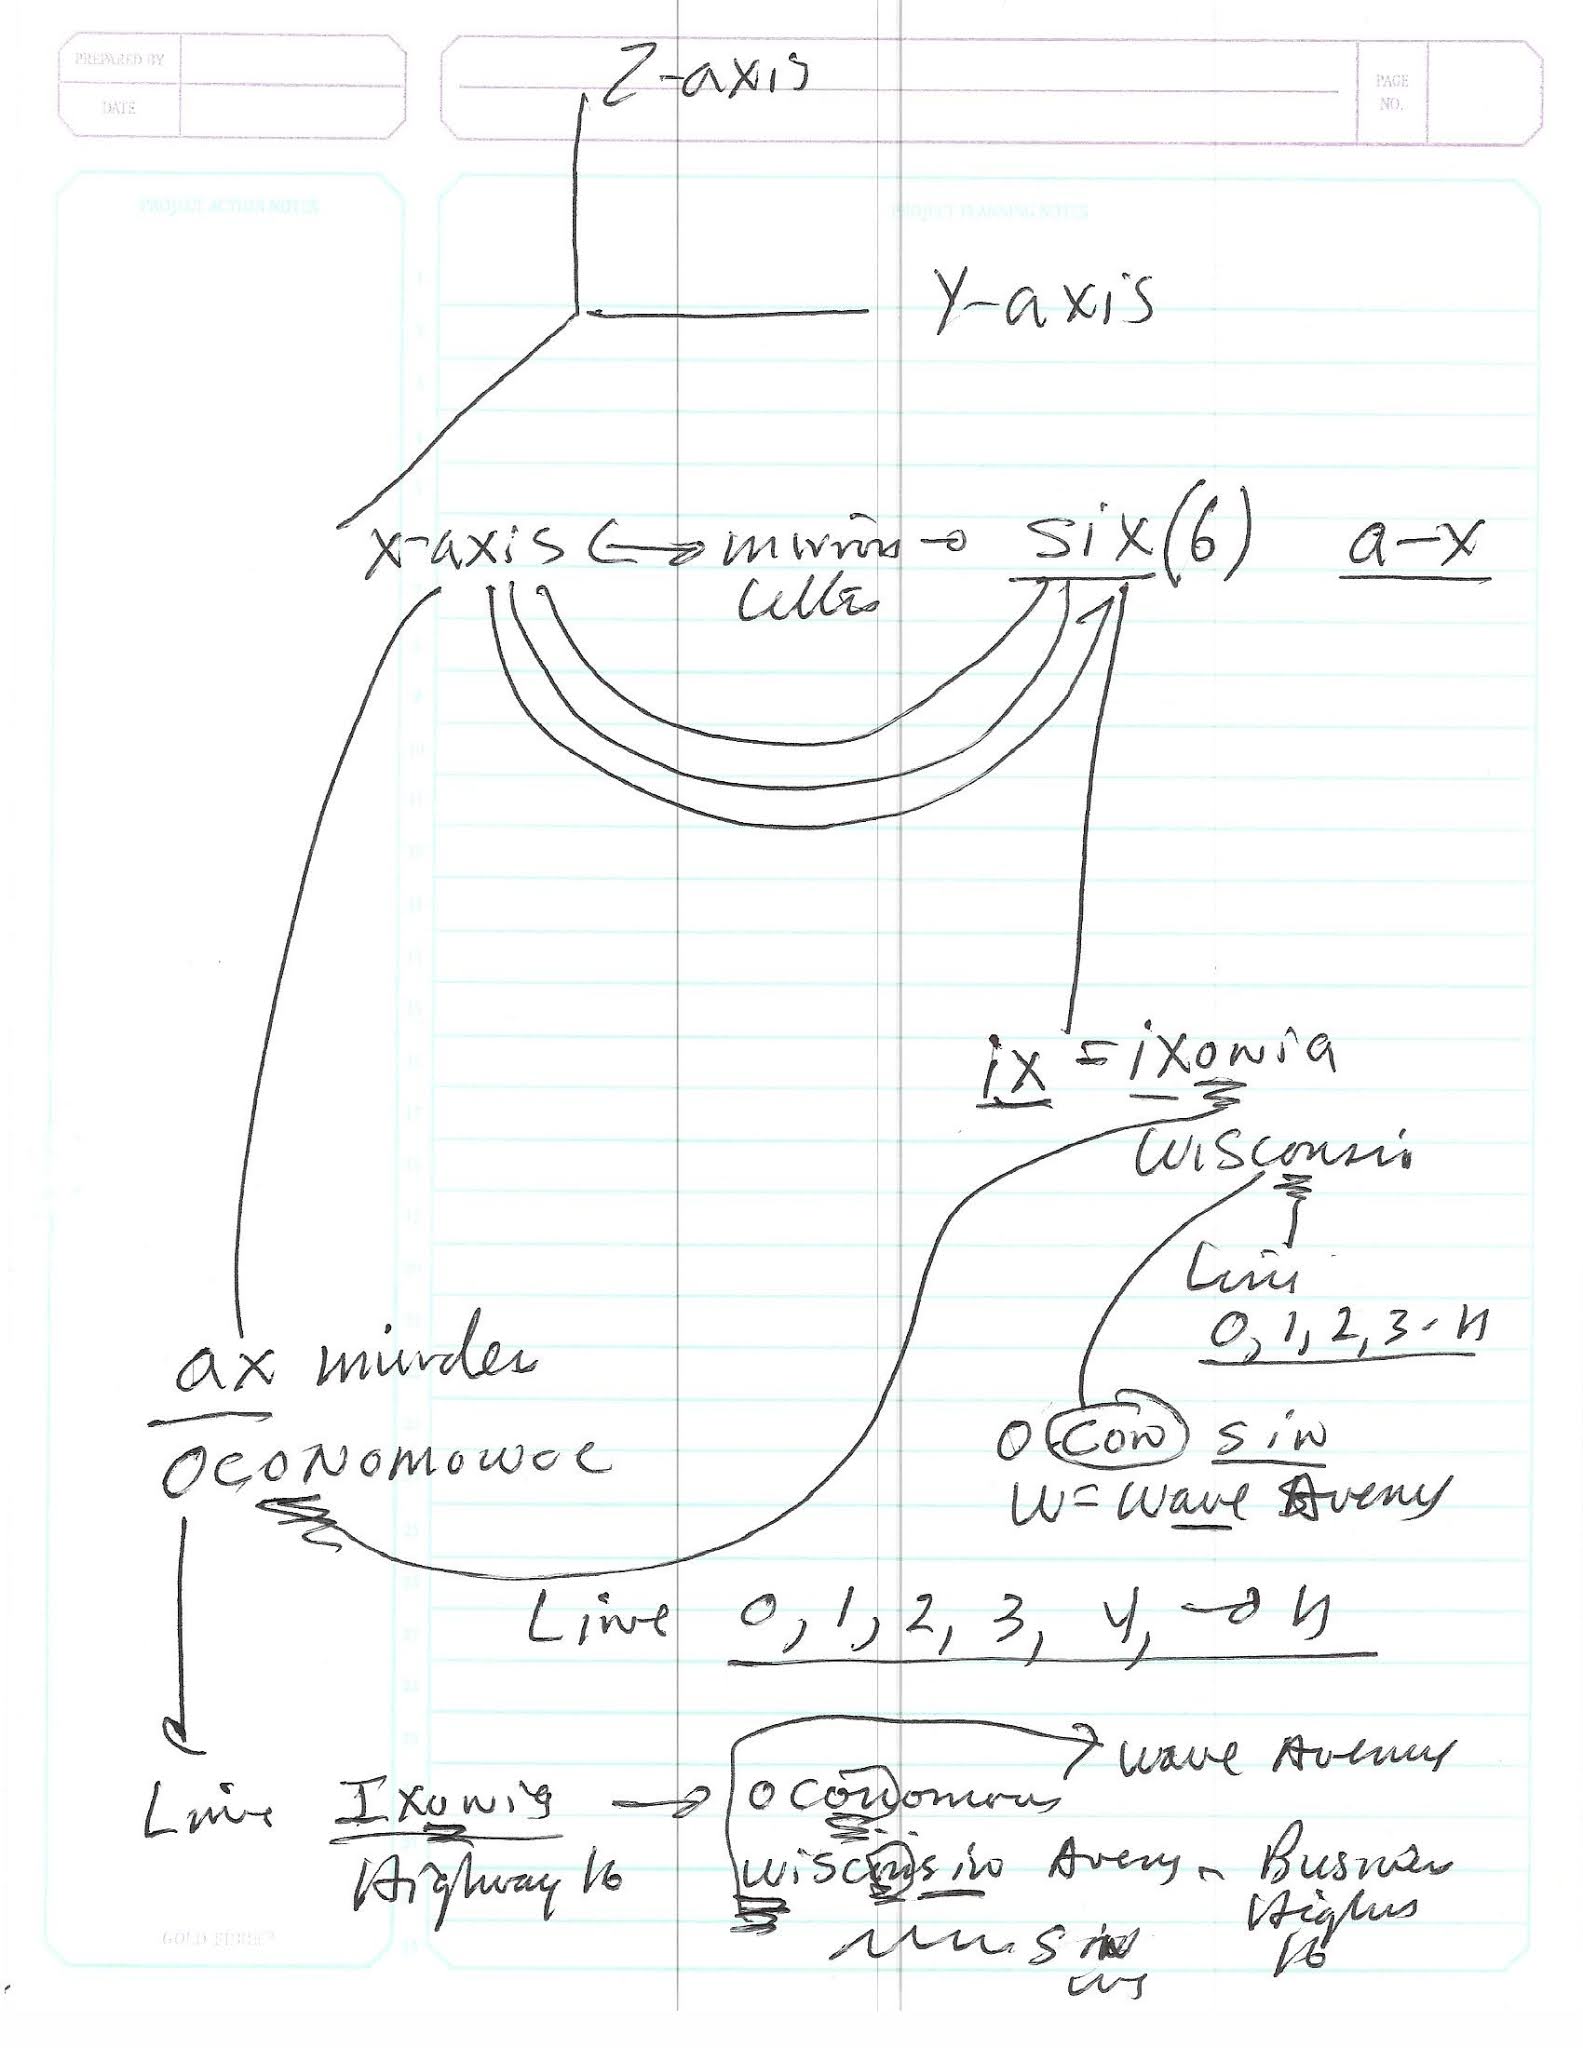 PREPARED BY
DATE
PAGE NO.
Z-axis
PROJECT ACTION NOTES
PROJECT PLANNING NOTES
Y-axis
x-axis six (6) a-x
ix = ixonia
Wisconsin
0, 1, 2, 3 - n
ax murder
OCONomowoc
O con sin
W = Wave Avenue
Line 0, 1, 2, 3, 4, → n
Wave Avenue
Line Ixonia → Oconomowoc
Highway 16
Wisconsin Avenue
Business
Highway
16
GOLD FIBRE
sin